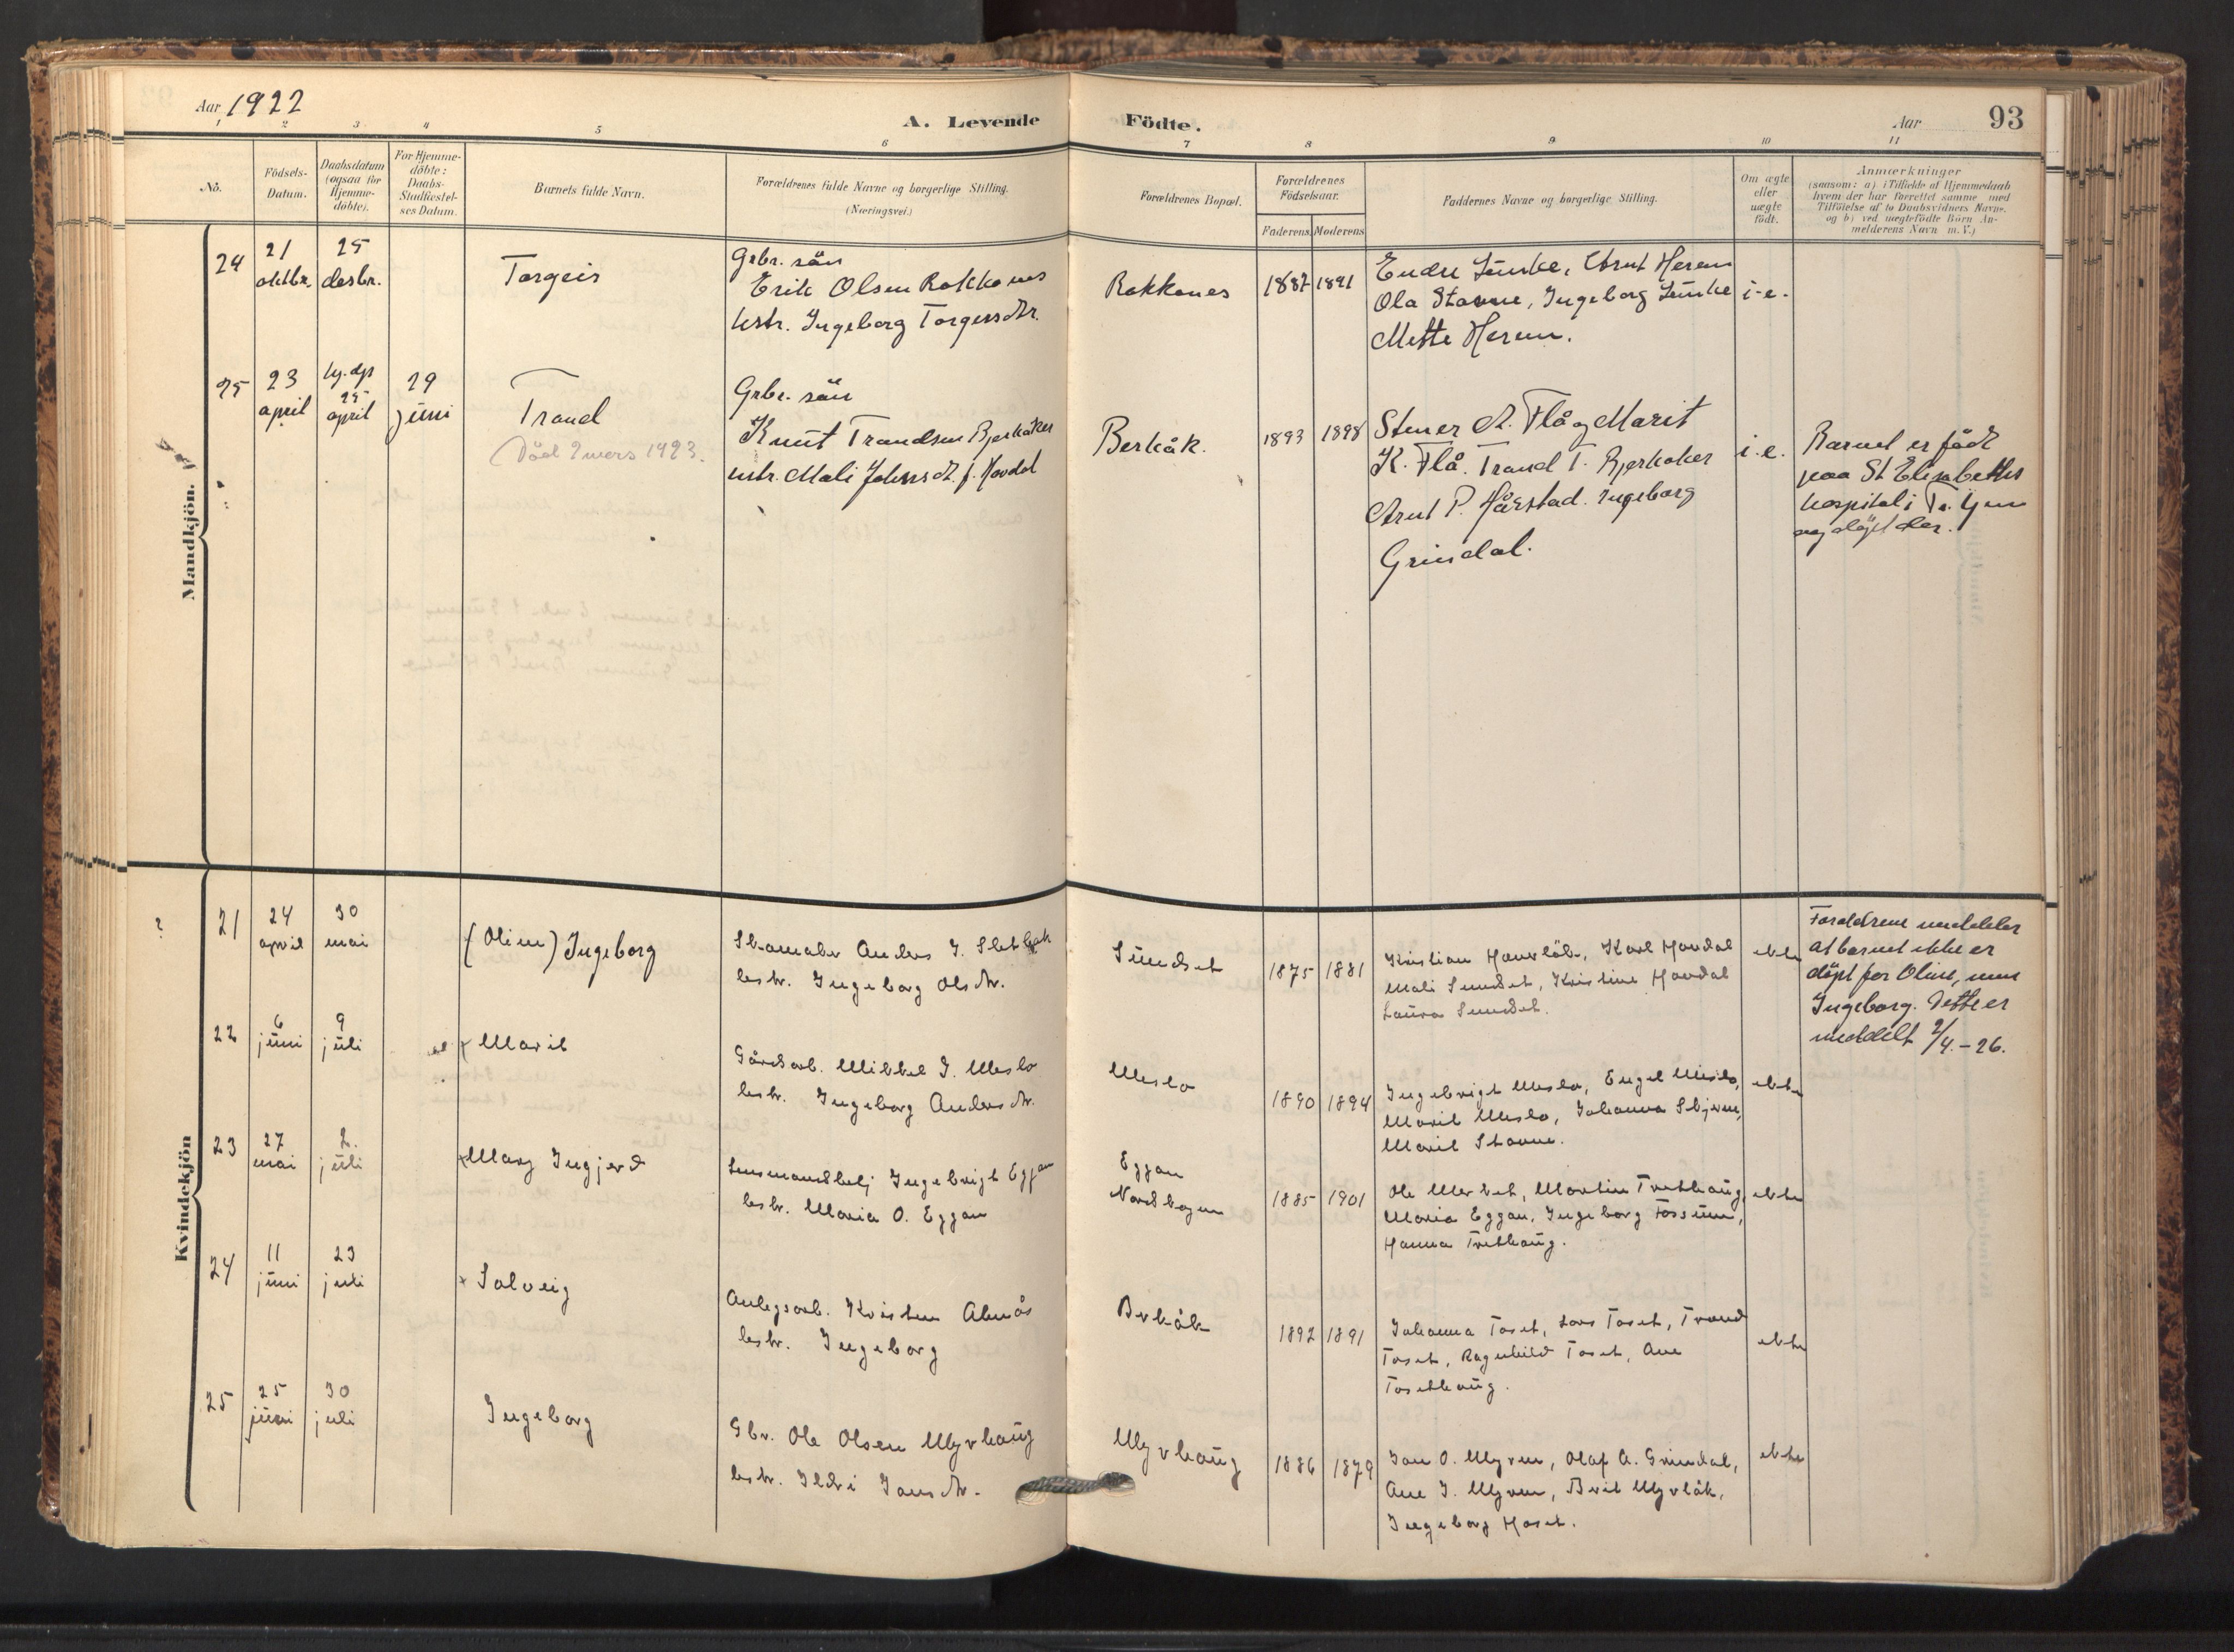 Aar 1922
A. Levende Födte.
Aar 93
1 2 3 4 5 6 7 8 9 10 11
No.
Födsels-Datum.
Daabsdatum (ogsaa for Hjemme-döbte).
For Hjemme-döbte: Daabs-Stadfæstel-ses Datum.
Barnets fulde Navn.
Forældrenes fulde Navne og borgerlige Stilling.
(Næringsvei.)
Forældrenes Bopæl.
Forældrenes Födselsaar.
Faderens. Moderens
Faddernes Navne og borgerlige Stilling.
Om ægte eller uægte födt.
Anmærkninger
(saasom: a) i Tilfælde af Hjemmedaab
hvem der har forrettet samme med
Tilföielse af to Daabsvidners Navne.
og b) ved uægtefödte Börn An-
melderens Navn m. V.)
Mandkjön.
24
21 oktbr.
25 desbr.
Torgeir
Grbr. sön
Erik Olsen Rokkones
hstr. Ingeborg Torgersdtr.
Rokkones
1887 1891
Endre Lünke, Arnt Herem
Ola Stavne, Ingeborg Lünke
Mette Herem.
i-e.
25
23 april
hj. dpt 25 april
29 jüni
Trond
Död 2 mars 1923.
Grbr. sön
Knut Trondsen Bjerkaker
hstr. Mali Johnsdt. f. Hovdal
Berkåk.
1893 1898
Stener A. Flå og Marit
K. Flå. Trond T. Bjerkaker
Arnt P. Hårstad. Ingeborg
Grindal.
i.e.
Barnet er född
paa St Elisabeths
hospital i Tr.hjem
og döpt der.
Kvindekjön
?
21
24 april
30 mai
(Oline) Ingeborg
Skomaker Anders J. Sletbak
hstr. Ingeborg Olsdtr.
Sündset
1875 1881
Kristian Haverlök, Karl Hovdal
Mali Sundset, Kristine Hovdal
Laura Sundset.
ekte
Foreldrene meddeler
at barnet ikke er
döpt for Oline, men
Ingeborg. Dette er
meddelt 2/4.-26.
22
6 jüni
9 jüli
Marit
Gårdsarb. Mikkel J. Meslo
hstr. Ingeborg Andersdtr.
Meslo
1890 1894
Ingebrigt Meslo, Engel Meslo,
Marit Meslo, Johanna Skjerve,
Marit Stavne.
ekte
23
27 mai
2. jüli
Mary Ingjerd
Lensmandbetj Ingebrigt Eggan
hstr. Maria O. Eggan
Eggan
Nordskogen
1885 1901
Ole Merket, Martin Tretthaug,
Maria Eggan, Ingeborg Fossum,
Hanna Tretthaug.
ekte
24
11 jüni
23 juli
Solveig
Anlegsarb. Kristen Almås
hstr. Ingeborg
Berkåk
1892 1891
Johanna Toset, Lars Toset, Trond
Toset, Ragnhild Toset, Ane
Tosethaug.
ekte
25
25 jüni
30 juli
Ingeborg
Gbr. Ole Olsen Myrhaug
hstr. Ildri Jonsdtr.
Myrhaug
1886 1879
Jon O. Myren, Olaf A. Grindal,
Ane J. Myren, Berit Myrlök,
Ingeborg Hoset.
ekte